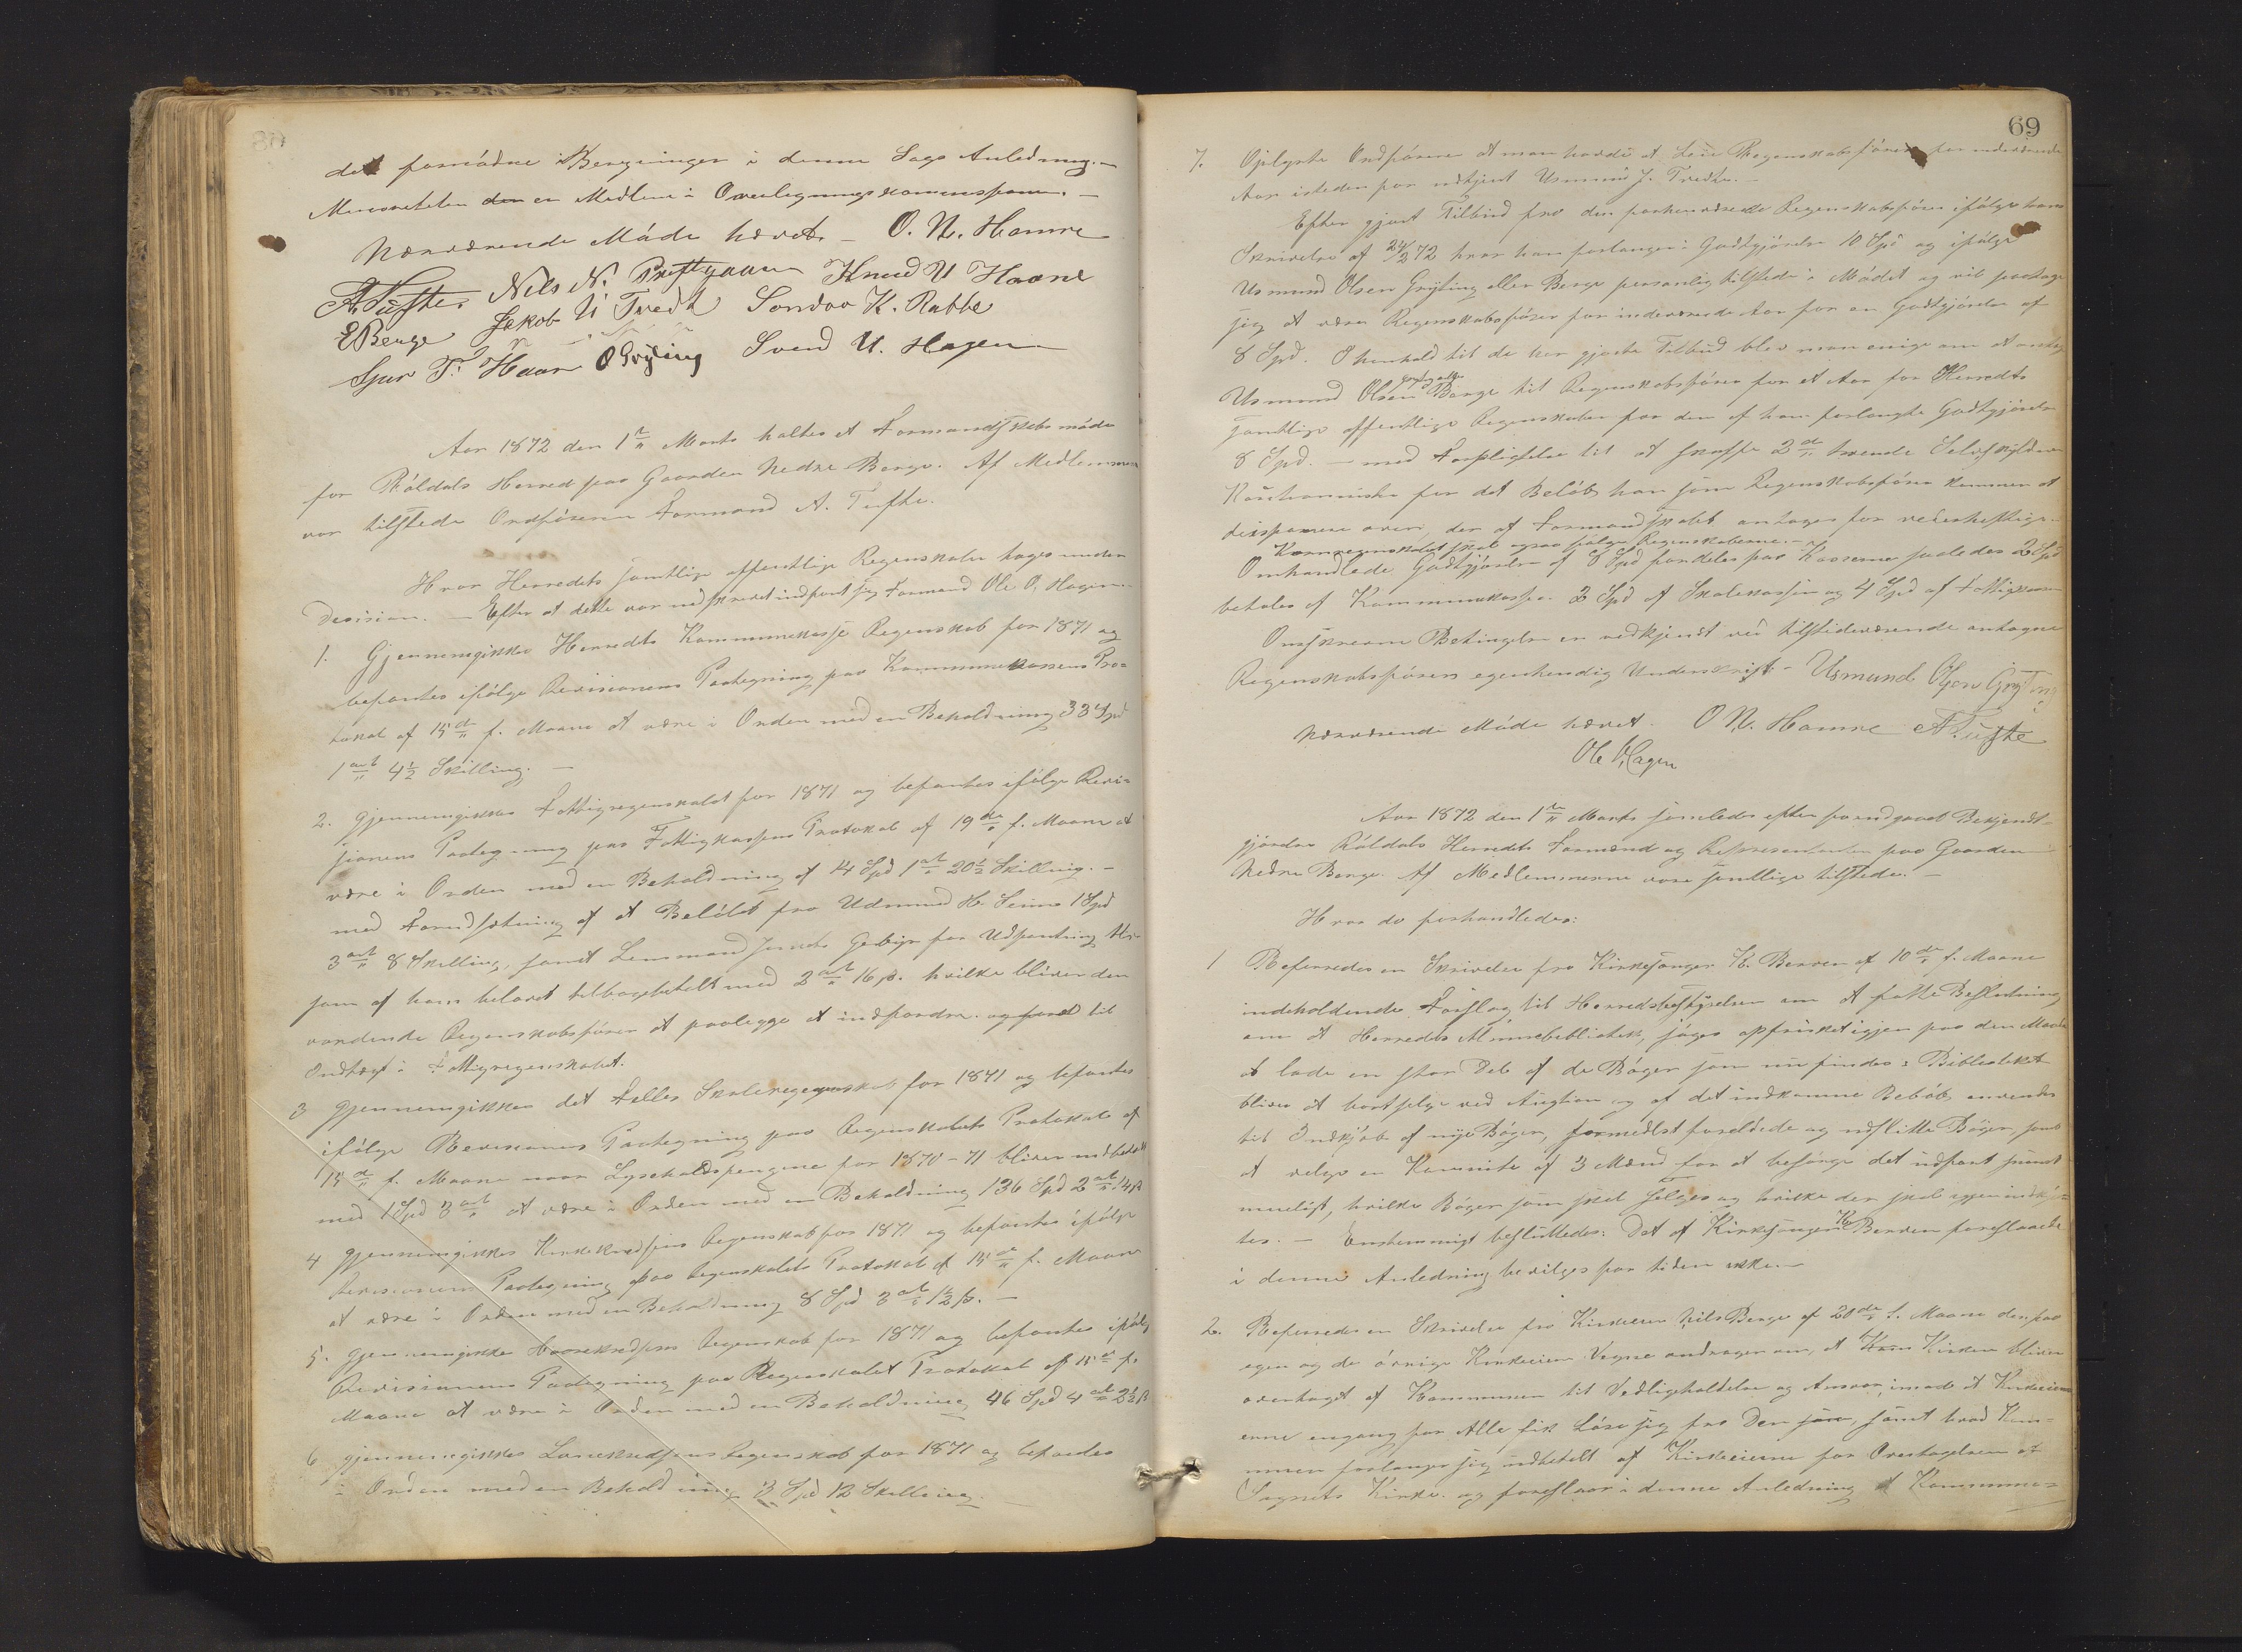 det fornødne i Beregninger i denne Sags Anledning.
Menoverhelen den er Medlem i Overlegningskommissionen. –
Nærværende Møde hævet – O. N. Hamre
A. Tufte. Nils N. Prestgaard Knud U Haare
E Berge Jakob U Tredt Sondov K. Rabbe
Sjur T. Haare O Gryting Svend U. Hagen
Aar 1872 den 1te Marts holtes et Formandskabsmøde
for Røldals Herred paa Gaarden Nedre Berge. Af Medlemmer
var tilstede Ordføreren Formand A. Tufte.
Hvor Herredets samtlige offentlige Regenskaber toges under
Decision. – Efter at dette var nedskrevet indfant sig Formand Ole O. Hagen.
1. Gjennemgikkes Herredets Kommunekasse Regenskab for 1871 og
befantes ifølge Revisionens Paategning paa Kommunekassens Pro-
tokol af 15de f. Maane at være i Orden med en Beholdning 33 Spd
1 ort 4½ Skilling. –
2. Gjennemgikkes Fattigregenskabet for 1871 og befantes ifølge Revi-
sionens Paategning paa Fattigkassens Protokol af 19de f. Maane at
være i Orden med en Beholdning af 14 Spd 1 ort 20½ Skilling. –
med Forudsætning af at Beløbet fra Udmund H. Seim 1 Spd
3 ort 8 Skilling, samt Lensmand Gebyr for Udpantning
som af ham belovet tilbagebetalt med 2 ort 16 ß. hvilke bliver den
vordende Regenskabsfører at paalegge at indfordre og ført til
Indtægt i Fattigregenskabet.
3 Gjennemgikkes det Fælles Skoleregenskab for 1871 og befantes
ifølge Revisionens Paategning paa Regenskabets Protokol af
15de f. Maane naar Lysekoldspengene for 1870-71 bliver indbetalt
med 1 Spd 3 ort at være i Orden med en Beholdning 136 Spd 2 ort 14 ß
4 Gjennemgikkes Kirkekredsens Regenskab for 1871 og befantes ifølge
Revisionens Paategning paa Regenskabets Protokol af 15de f. Maane
at være i Orden med en Beholdning 8 Spd 3 ort 1½ ß. –
5. Gjennemgikkes Haarekredsens Regenskab for 1871 og befantes ifølge
Revisionens Paategning paa Regenskabet Protokol af 15de f.
Maane at være i Orden med en Beholdning 46 Spd 4 ort 2½ ß
6 Gjennemgikkes Kredsens Regenskab for 1871 og befandtes
i Orden med en Beholdning 3 Spd 12 Skilling.
69
7. Oplyste Ordføreren at man havde at Leie Regenskabsfører for indeværende
Aar isteden for udtjent Usmund J. Tredte. –
Efter gjort Tilbud fra den forhenværende Regenskabsfører ifølge hans
Skrivelse af 24/2 72 hvor han forlanger i Godtgjørelse 10 Spd og ifølge
Usmund Olsen Gryting eller Berge personlig tilstede i Mødet og vil paatage
sig at være Regenskabsfører for indeværende Aar for en Godtgjørelse af
8 Spd. I henhold til de her gjorte Tilbud blev man enige om at antage
Usmund Olsen Berge til Regenskabsfører for et Aar for Herredets
samtlige offentlige Regenskaber for den af ham forlangte Godtgjørelse
8 Spd. – med Forpligtelse til at skaffe 2de troende Selvskyldner
Kautionister for det Beløb han som Regenskabsfører kommer at
disponere over, der af Formandskabet antages for vederheftige.
Kornregenskabet skal ogsaa følge Regenskaberne. –
Omhandlede Godtgjørelse af 8 Spd fordeles paa Kasserne saaledes 2 Spd
betales af Kommunekassen. 2 Spd af Skolekassen og 4 Spd af Fattigkassen
Omskrevne Betingelser er vedkjendt ved tilstedeværende antagne
Regenskabsførers egenhendig Underskrift – Usmund Olsen Gryting
Nærværende Møde hævet. O N. Hamre A Tufte
Ole O Hagen
Aar 1872 den 1te Marts samledes efter forudgaaet Bekjendt-
gjørelse Røldals Herredts Formænd og Repræsentanter paa Gaarden
Nedre Berge. Af Medlemmerne vare samtlige tilstede. –
Hvor da forhandledes:
1 Refereredes en Skrivelse fra Kirkesanger K. Berven af 10de f. Maane
indeholdende Forslag til Herredsbestyrelsen om at fatte Beslutning
om at Herredets Almuebibliotek, søges opfrisket igjen paa den Maade
at lade en stor Del af de Bøger som nu findes i Biblioteket
bliver at bortselge ved Auction og af det indkomne Beløb anvendes
til Indkjøb af nye Bøger, formedelst foreldede og udslitte Bøger, samt
at velge en Komite af 3 Mænd for at besørge det udført snarest
mueligt, hvilke Bøger som skal selges og hvilke der skal igjen indkjø-
bes. – Enstemmigt besluttedes: Det af Kirkesanger K Berven foreslaaede
i denne Anledning bevilges for tiden ikke. –
2. Refereredes en Skrivelse fra Kirkeeier Nils Berge af 20de f. Maane der paa
egen og de øvrige Kirkeeiere Vegne andrager om, at Kirken bliver
overtaget af Kommunen til Vedligeholdelse og Ansvar, imod at Kirkeeier-
erne engang for Alle fik Løse sig fra Den, samt hvad Kom-
munen forlanger sig udbetalt af Kirkeeierne for Overtagelsen af
Sognets Kirke. og foreslaar i denne Anledning at Kommune-